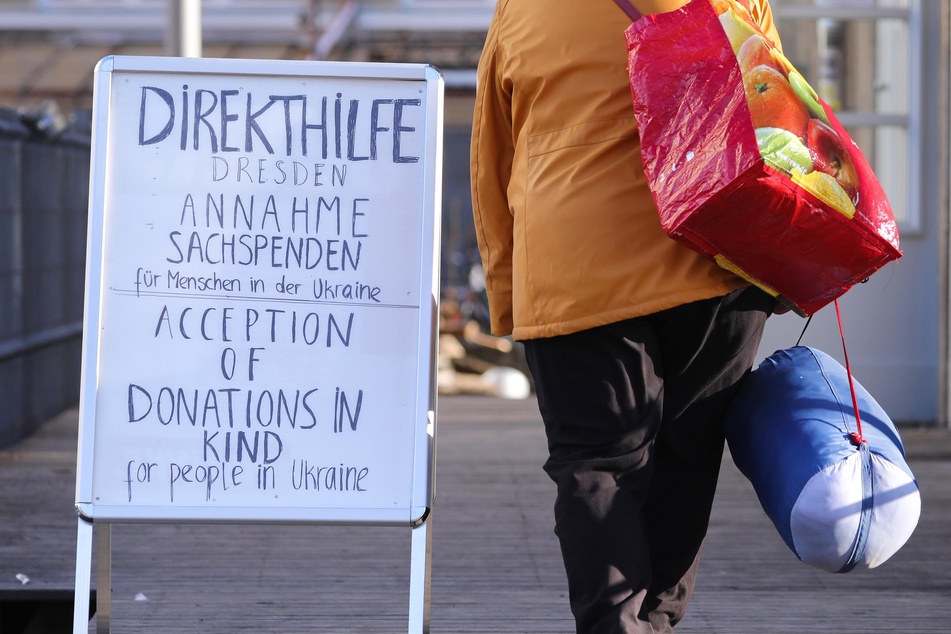 DIREKTHILFE
DRESDEN
ANNAHME
SACHSPENDEN
für Menschen in der Ukraine
ACCEPTION
OF
DONATIONS IN
KIND
for people in Ukraine